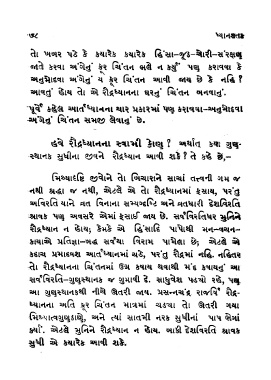 ૭૮
ધ્યાનશતક
તો ખબર પડે કે ક્યારેક ક્યારેક હિંસા-જૂઠ-ચોરી-સંરક્ષણ
જાતે કરવા અંગેનું ક્રૂર ચિંતન ભલે ન કર્યું પણ કરાવવા કે
અનુમોદવા અંગેનું ય ક્રૂર ચિંતન આવી જાય છે કે નહિ?
આવતું હોય તો એ રૌદ્રધ્યાનના ઘરનું ચિંતન બનવાનું.
પૂર્વે કહેલ આર્તધ્યાનના ચાર પ્રકારમાં પણ કરાવવા-અનુમોદવા
અંગેનું ચિંતન સમજી લેવાનું છે.
હવે રૌદ્રધ્યાનના સ્વામી કોણ? અર્થાત્ કયા ગુણ-
સ્થાનક સુધીના જીવને રૌદ્રધ્યાન આવી શકે? તે કહે છે,–
મિથ્યાદૃષ્ટિ જીવોને તો બિચારાને સાચાં તત્ત્વની ગમ જ
નથી શ્રદ્ધા જ નથી, એટલે એ તો રૌદ્રધ્યાનમાં ફસાય, પરંતુ
અવિરતિ યાને વ્રત વિનાના સમ્યગ્દૃષ્ટિ અને વ્રતધારી દેશવિરતિ
શ્રાવક પણ અવસરે એમાં ફસાઈ જાય છે. સર્વવિરતિધર મુનિને
રૌદ્રધ્યાન ન હોય; કેમકે એ હિંસાદિ પાપોથી મન-વચન-
કાયાએ પ્રતિજ્ઞા-બદ્ધ સર્વથા વિરામ પામેલા છે; એટલે એ
કદાચ પ્રમાદવશ આર્તધ્યાનમાં ચડે, પરંતુ રૌદ્રમાં નહિ. નહિતર
તો રૌદ્રધ્યાનના ચિંતનમાં ઉગ્ર કષાય થવાથી મંદ કષાયનું આ
સર્વવિરતિ-ગુણસ્થાનક જ ગુમાવી દે. સાધુવેશ પડ્યો રહે, પણ
આ ગુણસ્થાનકથી નીચે ઊતરી જાય. પ્રસન્નચંદ્ર રાજર્ષિ રૌદ્ર-
ધ્યાનના અતિ ક્રૂર ચિંતન માત્રમાં ચડવા તો ઊતરી ગયા
મિથ્યાત્વગુણઠાણે, અને ત્યાં સાતમી નરક સુધીનાં પાપ ભેગાં
કર્યાં. એટલે મુનિને રૌદ્રધ્યાન ન હોય. બાકી દેશવિરતિ શ્રાવક
સુધી એ ક્યારેક આવી શકે.